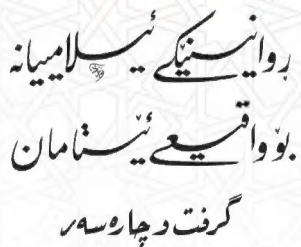 ڕوانینێکی ئیسلامییانە
بۆ واقیعی ئێستامان
گرفت و چارەسەر